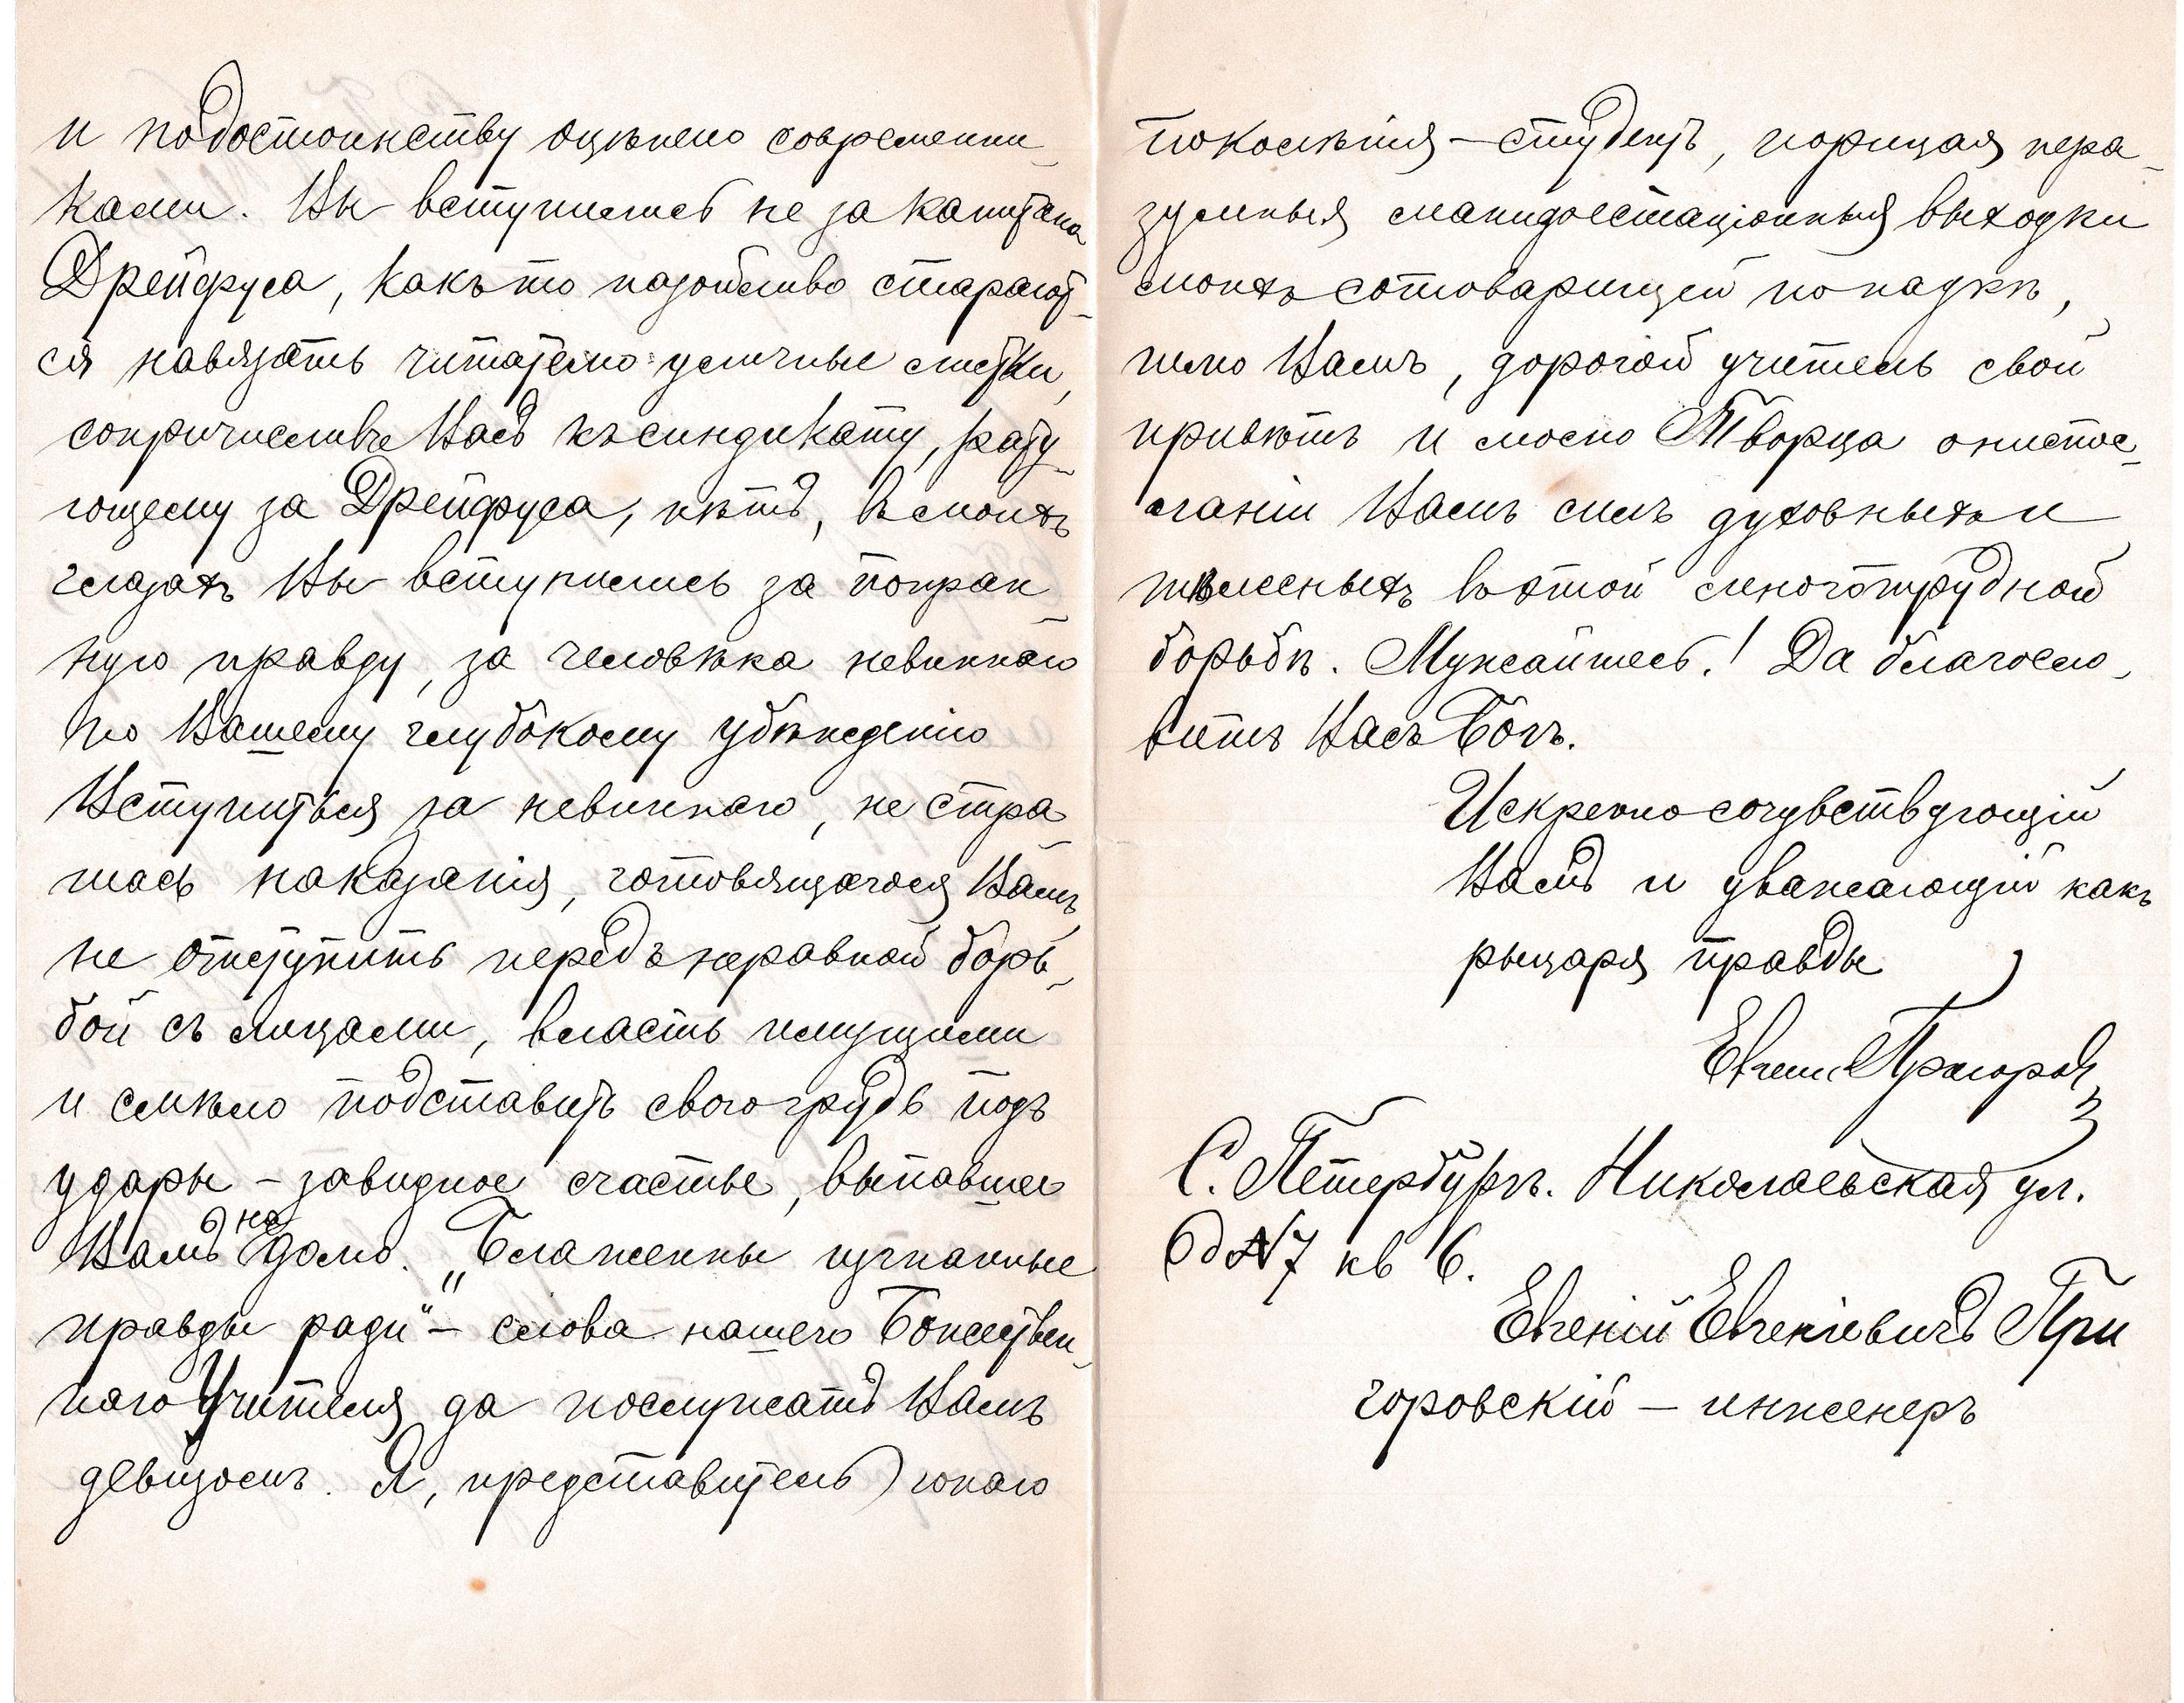 и подостоинству оцѣнено современни-
ками. Вы вступились не за капитана
Дрейфуса, какъ то назойливо старают-
ся навязать читателю уличные листки,
сопричисливъ Васъ къ синдикату, рату-
ющему за Дрейфуса, нѣтъ, въ моихъ
глазахъ Вы вступились за попран-
ную правду, за человѣка невиннаго
по Вашему глубокому убѣжденію
Вступиться за невиннаго, не стра-
шась наказанія, готовящагося Вамъ
не отступить передъ неравной борь-
бой съ лицами, власть имущими
и смѣло подставить свою грудь подъ
удары – завидное счастье, выпавшее
Вамъ на долю. „Блаженны изгнанные
правды ради“ – слова нашего Божествен-
наго Учителя да послужатъ Вамъ
девизомъ. Я, представитель юнаго
поколѣнія – студентъ, порицая нера-
зумныя манифестаціонныя выходки
моихъ сотоварищей по наукѣ,
шлю Вамъ, дорогой учитель свой
привѣтъ и молю Творца о ниспос-
ланіи Вамъ силъ духовныхъ и
тѣлесныхъ въ этой многотрудной
борьбѣ. Мужайтесь! Да благосло-
витъ Васъ Богъ.
Искренно сочувствующій
Вамъ и уважающій какъ
рыцаря правды
Евгеній
С. Петербургъ. Николаевская ул.
д № 7 кв 6.
Евгеній Евгеніевичъ При
горовскій – инженеръ